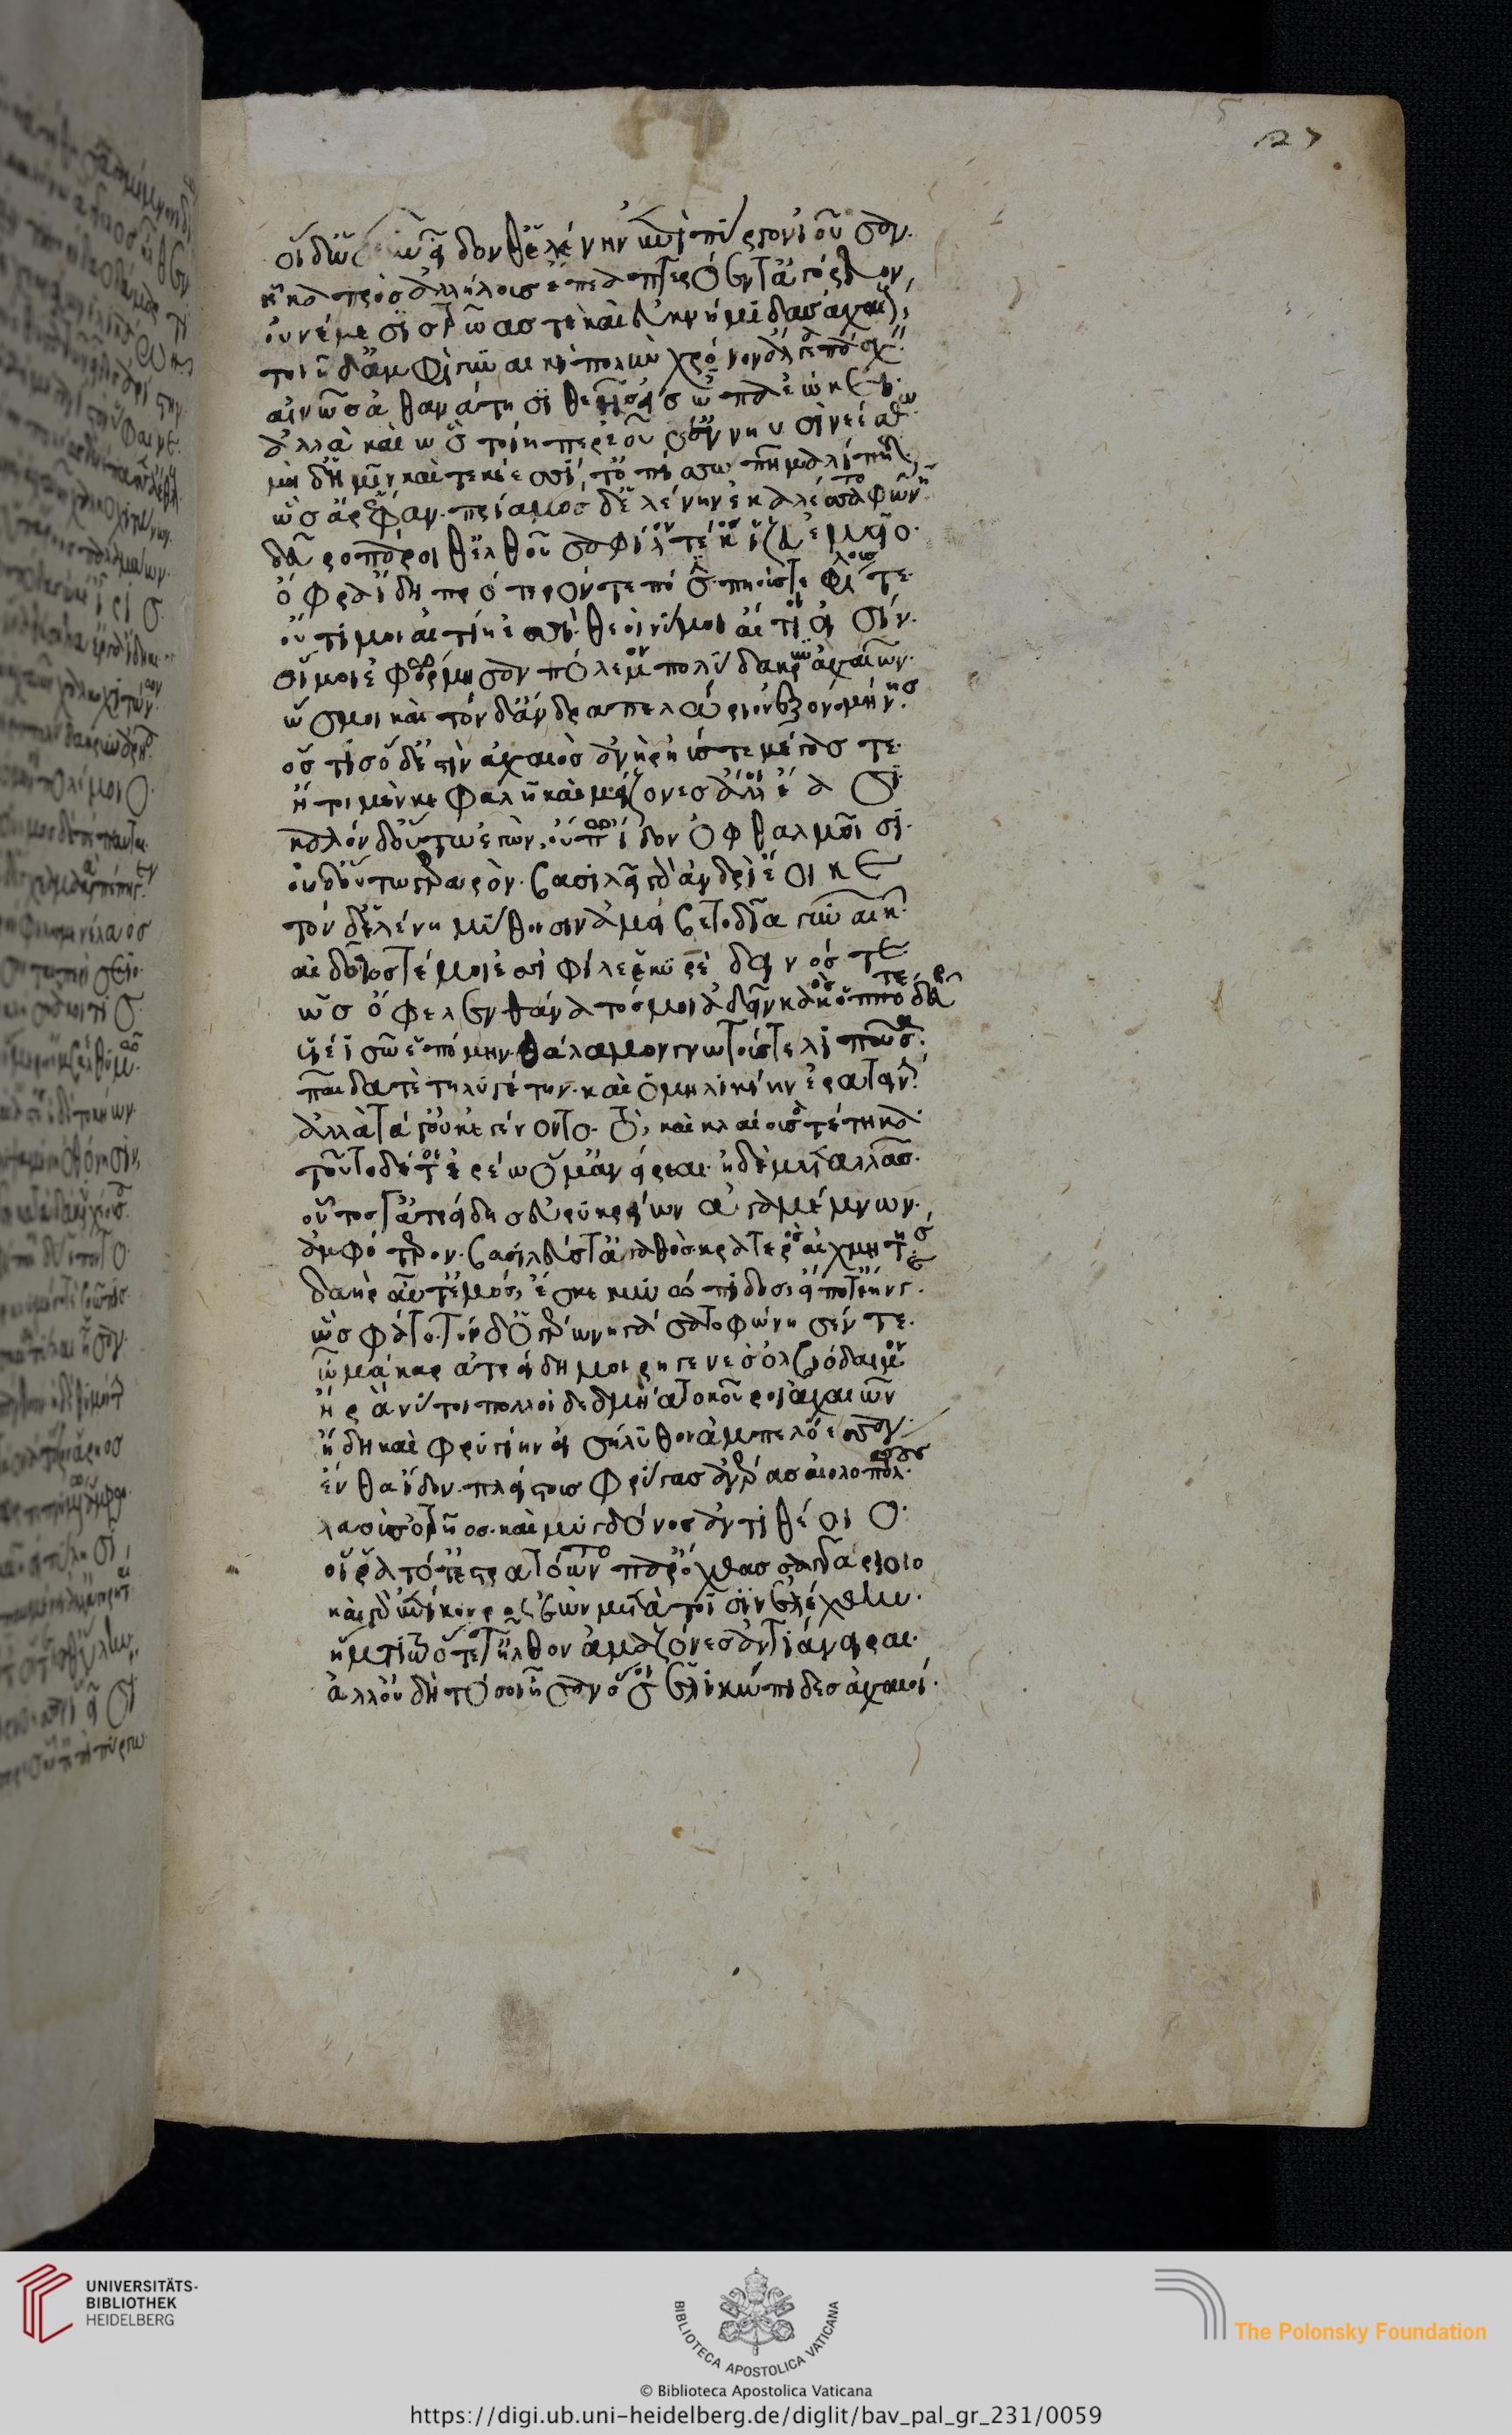 27
οἳ δ' ὡς οὖν εἶδονθ' ἑλένην ἐπὶ πύργον ἰοῦσαν.
ἦκα πρὸς ἀλλήλους ἔπεα πτερόεντ' ἀγόρευον,
οὐ νέμεσις τρῶας τε καὶ ἐυκνήμιδας ἀχαιούς,
τοιῆδ' ἀμφὶ γυναικὶ πολὺν χρόνον ἄλγεα πάσχειν.
αἰνῶς ἀθανάτησι θεῆς εἰς ὦπα ἔοικεν.
ἀλλὰ καὶ ὣς τοίη περ ἐοῦσ' ἐν νηυσὶ νεέσθω
μὴ δ' ἡμῖν καὶ τεκέεσσι, τ' ὀπίσσω πῆμα λίποιτο,
ὣς ἄρ' ἔφαν. πρίαμος δ' ἑλένην ἐκαλέσσατο φωνῆ
δεῦρο πάροιθ' ἐλθοῦσα φίλον τέκος ἵζευ ἐμεῖο.
ὄφρα ἴδη πρότερόν τε πόσιν. πηούς τε φίλους τε.
οὔ τι μοι αἰτίη ἐσσί. θεοὶ νύ μοι αἴτιοι εἰσίν.
οἵ μοι ἐφόρμησαν πόλεμον πολύδακρυν ἀχαιῶν.
ὥς μοι καὶ τόνδ' ἄνδρα πελώριον ἐξονομήνης.
ὅς τις ὅδ' ἐστὶν ἀχαιὸς ἀνὴρ ἠύς τε μέγας τε.
ἤτοι μέν κεφαλῆ καὶ μείζονες ἄλλοι ἔασι.
καλὸν δ' οὕτω ἐγὼν. οὔπω ἴδον ὀφθαλμοῖσι.
οὐδ' οὕτω γεραρὸν. βασιλῆι γὰρ ἀνδρὶ ἔοικε
τὸν δ' ἑλένη μύθοισιν ἀμείβετο δῖα γυναικῶν.
αἰδοῖος τέ μοι ἐσσι φίλε ἑκυρὲ δεινός τε
ὡς ὄφελεν θάνατος μοι ἁδεῖν κακὸς ὁππότε δεῦρο
υἱέϊ σῶ ἑπόμην. θάλαμον γνωτούς τε λιποῦσα.
παῖδα τὲ τηλυγέτην. καὶ ὁμηλικίην ἐρατεινήν.
ἀλλὰ τά γ' οὐκ ἐγένοντο. τό, καὶ κλαίουσα τέτηκα.
τοῦτο δέ τοι ἐρέω ὅ μ' ἀνείρεαι. ἠδὲ μεταλλᾶς.
οὗτος γ' ἀτρείδης εὐρυκρείων ἀγαμέμνων.
ἀμφότερον. βασιλεύς τ' ἀγαθὸς κρατερός τ' αἰχμητής
δαὴρ αὖτ' ἐμὸς, ἔσκε κυνώπιδος. εἴποτ' ἔην γε.
ὣς φάτο. τὸν δ' ὁ γέρων ἠγάσατο φώνησέν τε.
ὦ μάκαρ ἀτρείδη μοιρηγενὲς ὀλβιόδαιμον
ἦ ῥὰ νύ τοι πολλοὶ δεδμήατο κοῦροι ἀχαιῶν
ἤδη καὶ φρυγίην εἰσήλυθον ἀμπελόεσσαν.
ἔνθα ἴδον. πλείστους φρύγας ἀνέρας αἰολοπώλους.
λαοὺς ὀτρῆος. καὶ μύγδονος ἀντιθέοιο.
οἵ ῥα τότ' ἐστρατόωντο παρ' ὄχθας σαγγαρίοιο
καὶ γὰρ ἐγὼν ἐπίκουρος ἐὼν μετὰ τοῖσιν ἐλέχθην.
ἤματι τῶ ὅτε τ' ἦλθον ἀμαζόνες ἀντιάνειραι.
ἀλλ' οὐδ' οἳ τόσοι ἦσαν ὅσοι ἑλίκωπιδες ἀχαιοί.
UNIVERSITÄTS-
BIBLIOTHEK
HEIDELBERG
BIBLIOTECA APOSTOLICA VATICANA
The Polonsky Foundation
© Biblioteca Apostolica Vaticana
https://digi.ub.uni-heidelberg.de/diglit/bav_pal_gr_231/0059